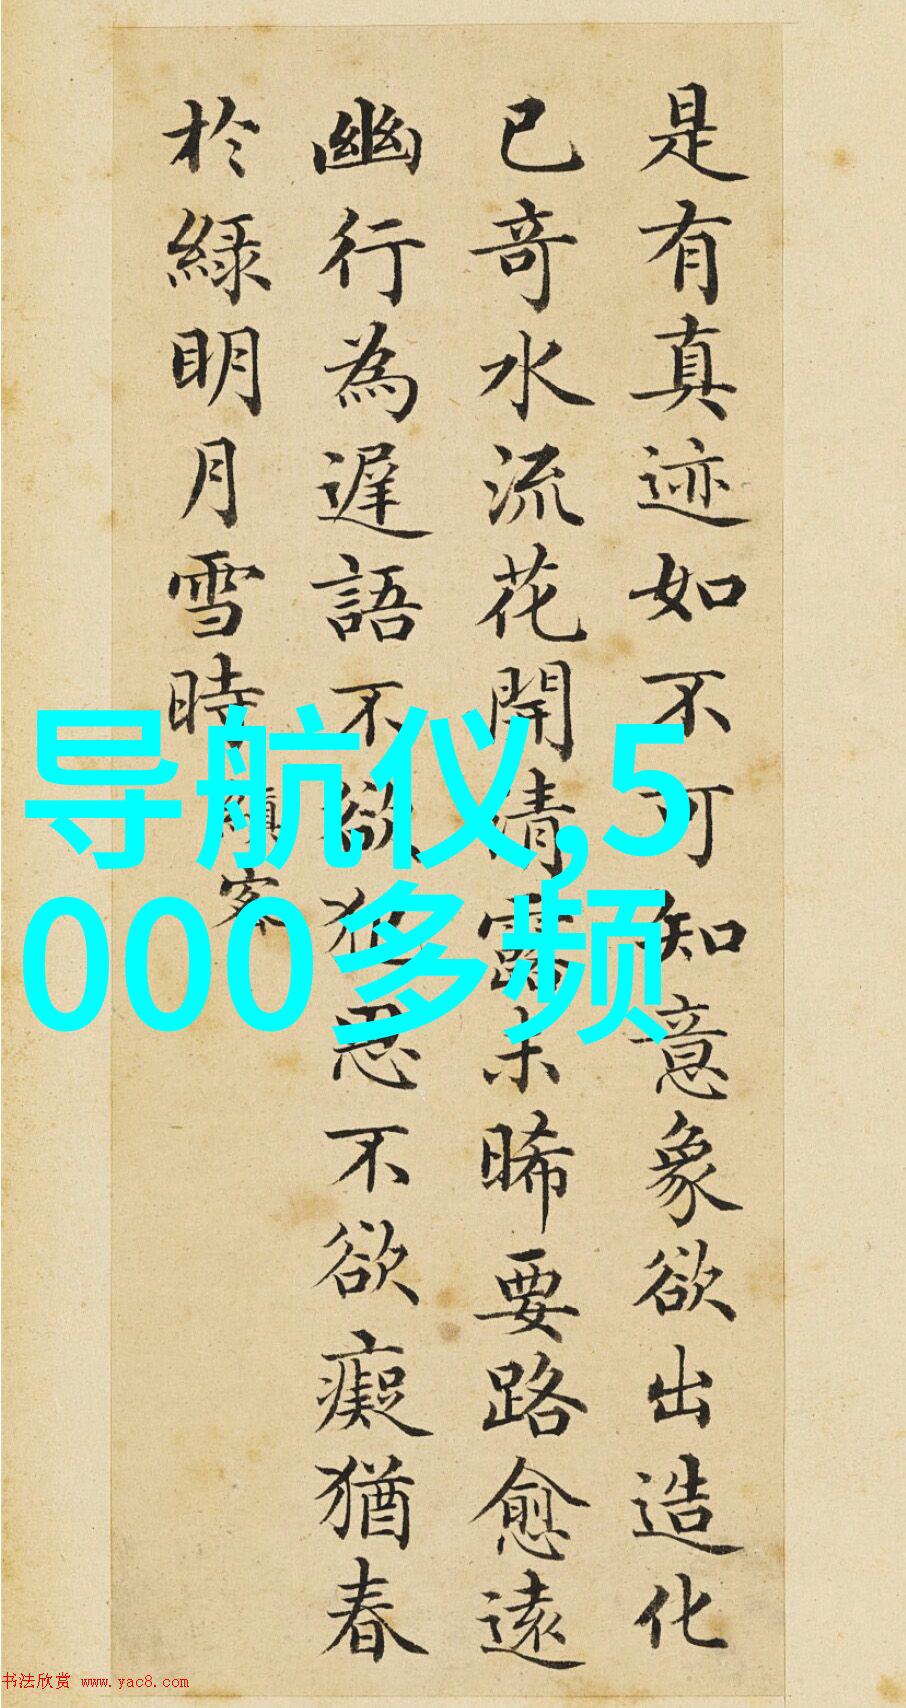 是有真迹如不可知意象欲出造化
已奇水流花開清露未晞要路愈遠
幽行為遲語不欲犯思不欲癡猶春
於綠明月雪時
导航仪,5
000多频
书法欣赏 www.yac8.com